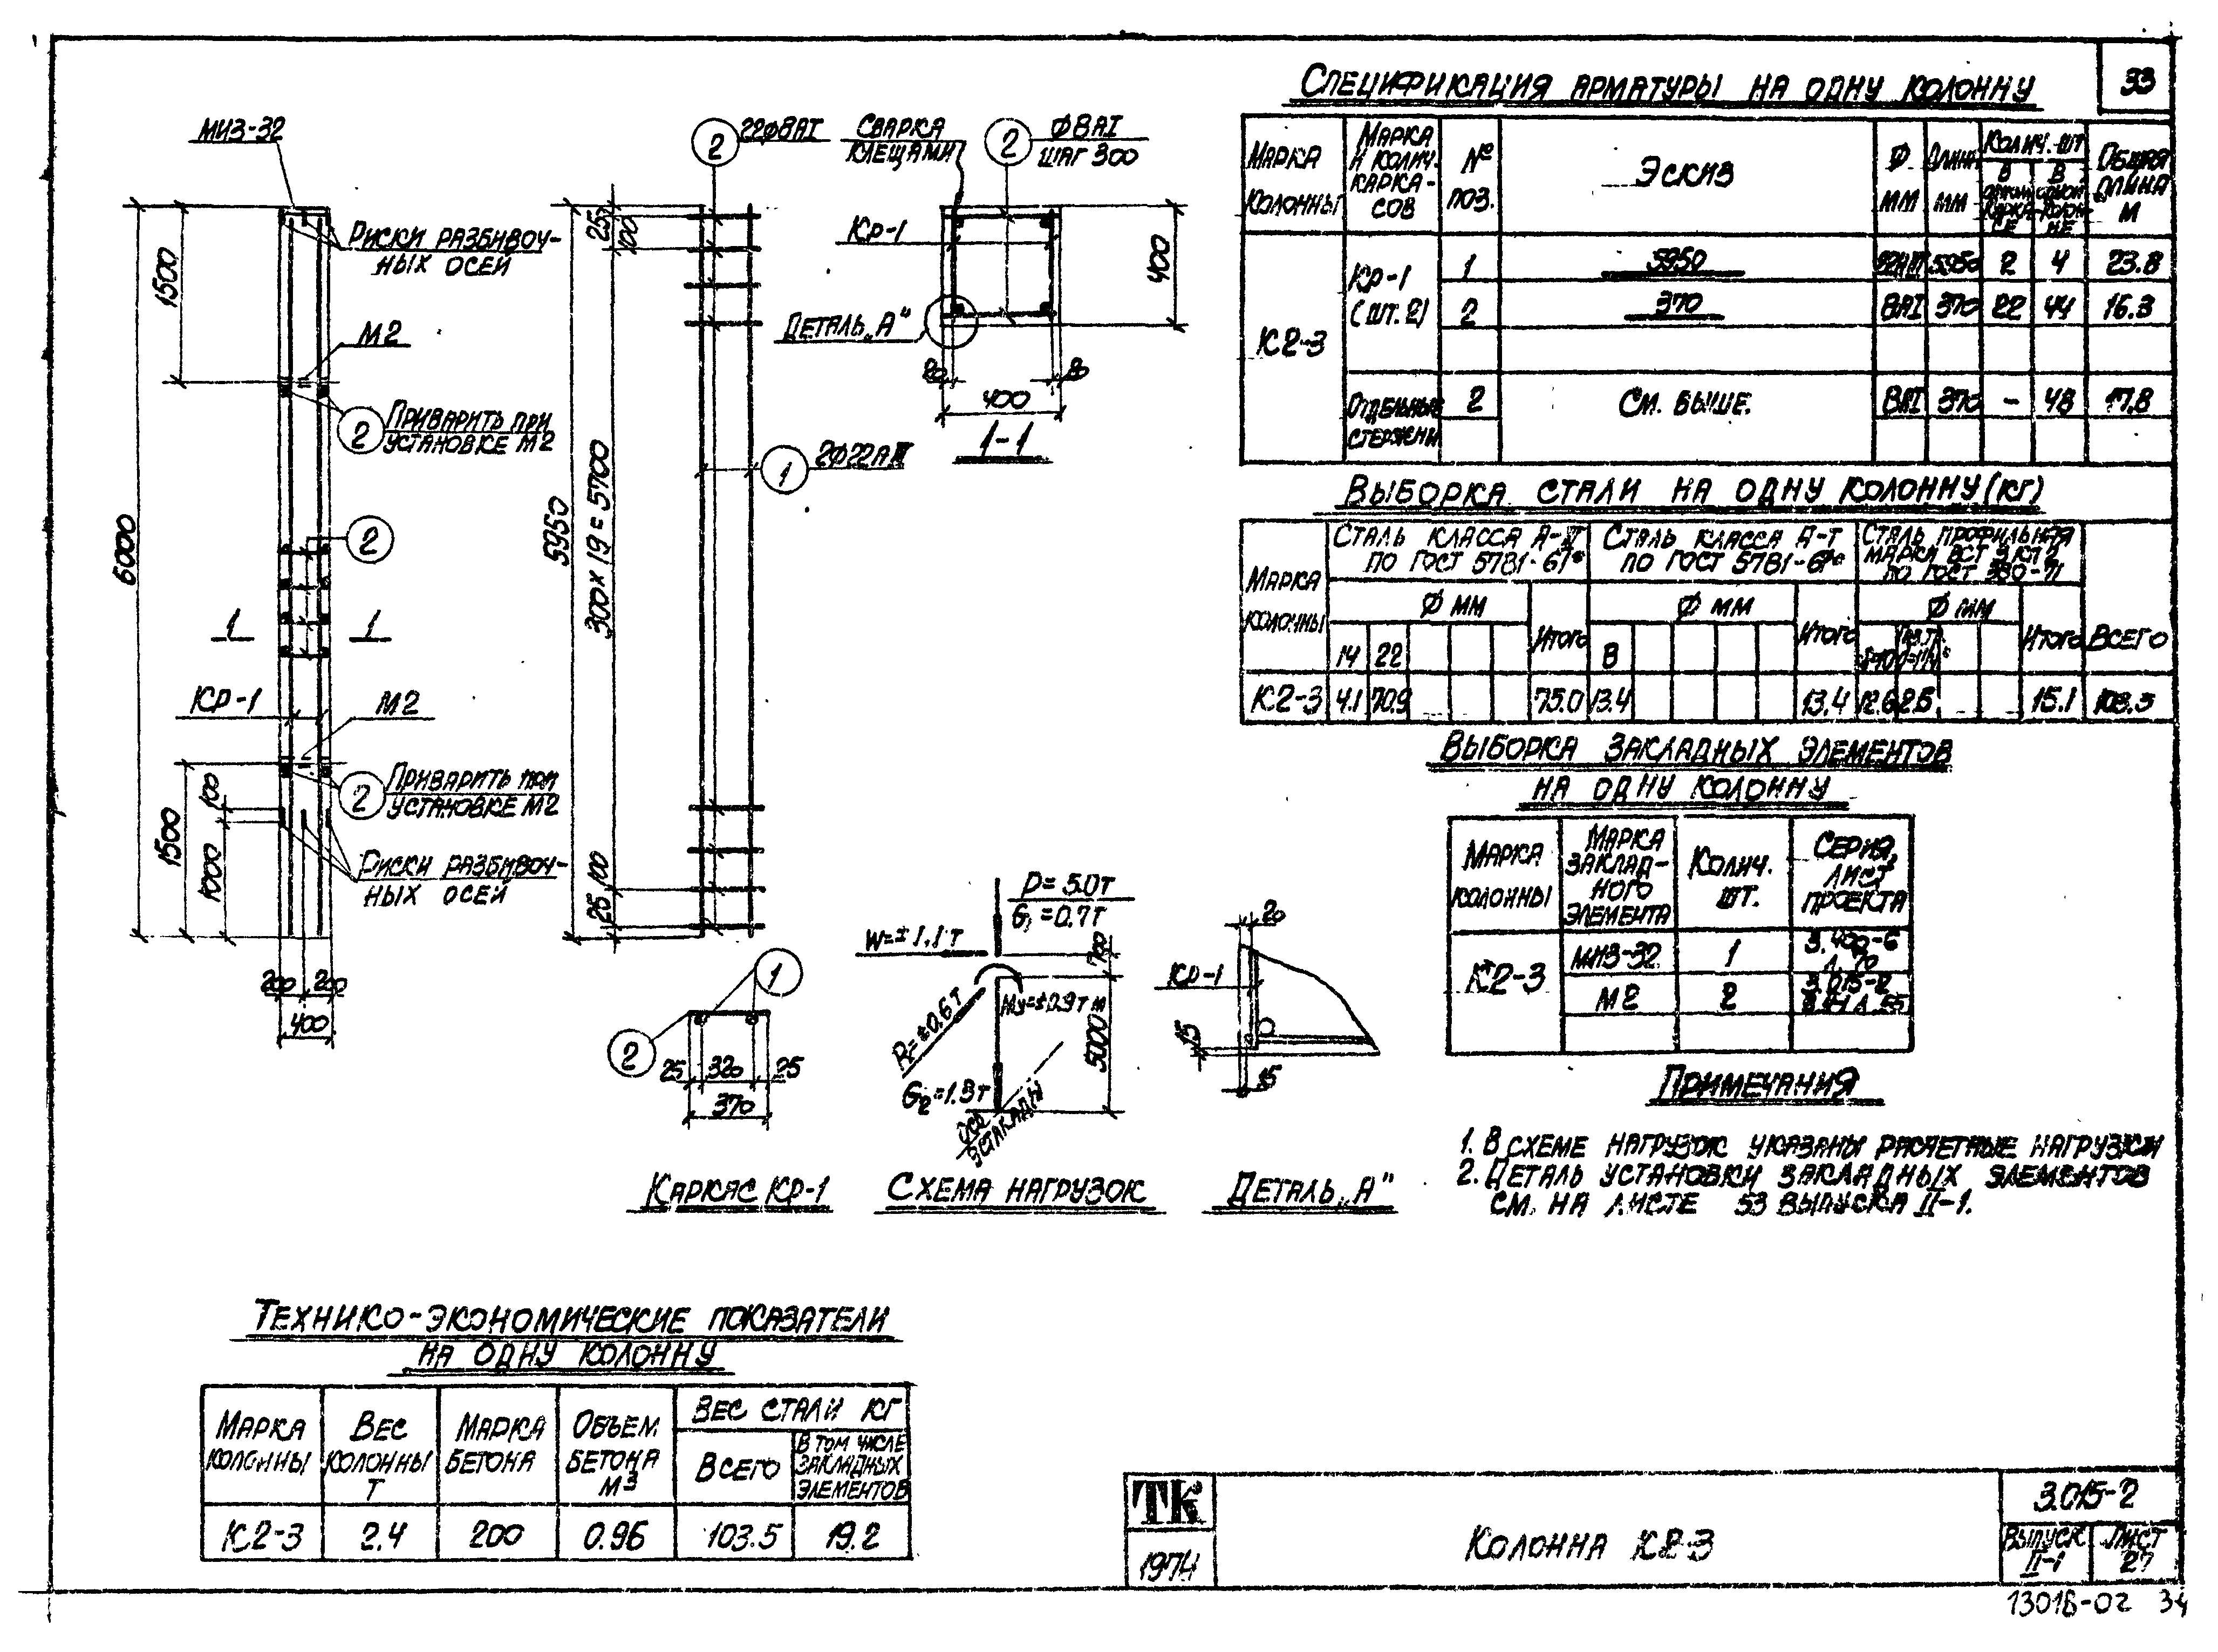 33
Спецификация арматуры на одну колонну
Марка колонны
Марка и колич. каркасов
№ поз.
Эскиз
Ф мм
Длина мм
Колич. шт
В одном каркасе
В одной колонне
Общая длина м
К2-3
Кр-1 (шт. 2)
1 5950 22АIII 5950 2 4 23.8
2 370 8АI 370 22 44 16.3
Отдельные стержни
2 См. выше. 8АI 370 - 48 17.8
Выборка стали на одну колонну (кг)
Марка колонны
Сталь класса А-III по ГОСТ 5781-61*
Сталь класса А-I по ГОСТ 5781-61*
Сталь профильная марка ВСт 3 кп 2 по ГОСТ 380-71
Ф мм Итого Ф мм Итого Ф мм Итого Всего
14 22 8
К2-3 4.1 70.9 75.0 13.4 13.4 12.6 2.5 15.1 103.5
Выборка закладных элементов
на одну колонну
Марка колонны
Марка закладного элемента
Колич. шт.
Серия, лист проекта
К2-3
МИЗ-32 1 3.400-6 л. 70
М2 2 3.015-2 в. II-1 л. 55
Примечания
1. В схеме нагрузок указаны расчетные нагрузки
2. Деталь установки закладных элементов
см. на листе 53 выпуска II-1.
МИЗ-32
Риски разбивоч-
ных осей
1500
М2
2 Приварить при
установке М2
6000
2
1 1
Кр-1
М2
2 Приварить при
установке М2
100
1500
1000
Риски разбивоч-
ных осей
200 200
400
2 22Ф8АI
25
100
5950
300 х 19 = 5700
1 2Ф22АIII
100
25
1
2
25 320 25
370
Каркас Кр-1
Сварка
клещами
2 Ф8АI
шаг 300
Кр-1
400
Деталь „А"
20 20
400
1-1
P = 5.0т
G₁ = 0.7т
W = ±1.1т
700
Mу = ±0.9т м
P = ±0.6т
5000
G₂ = 1.3т
Ось
эстакады
Схема нагрузок
20
Кр-1
15
15
Деталь „А"
Технико-экономические показатели
на одну колонну
Марка колонны
Вес колонны т
Марка бетона
Объем бетона м3
Вес стали кг
Всего
В том числе закладных элементов
К2-3 2.4 200 0.96 103.5 19.2
ТК
1974
Колонна К2-3
3.015-2
Выпуск II-1
Лист 27
13016-02 34